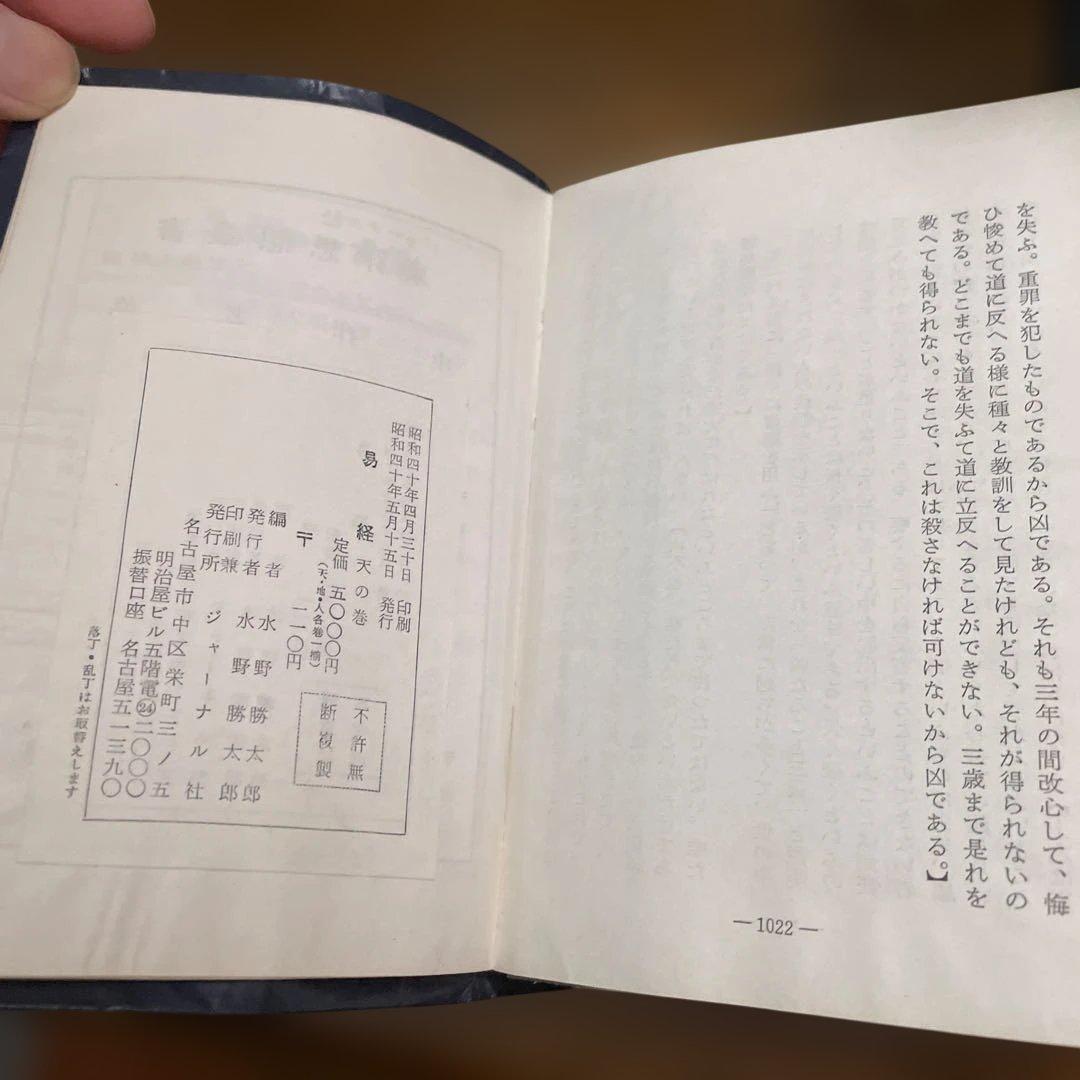 を失ふ。重罪を犯したものであるから凶である。それも三年の間改心して、悔
ひ悛めて道に反へる様に種々と教訓をして見たけれども、それが得られないの
である。どこまでも道を失ふて道に立反へることができない。三歳まで是れを
教へても得られない。そこで、これは殺さなければ可けないから凶である。】
—1022—
昭和四十年四月三十日 印刷
昭和四十年五月十五日 発行
易経 天の巻
定価 五〇〇〇円
(天・地・人各巻一揃)
〒 一一〇円
不許無
断複製
編者 水野勝太郎
発行者
印刷兼 水野勝太郎
発行所 ジャーナル社
名古屋市中区栄町三ノ五
明治屋ビル五階電㉔二〇〇〇
振替口座 名古屋五一三九〇
落丁・乱丁はお取替えします